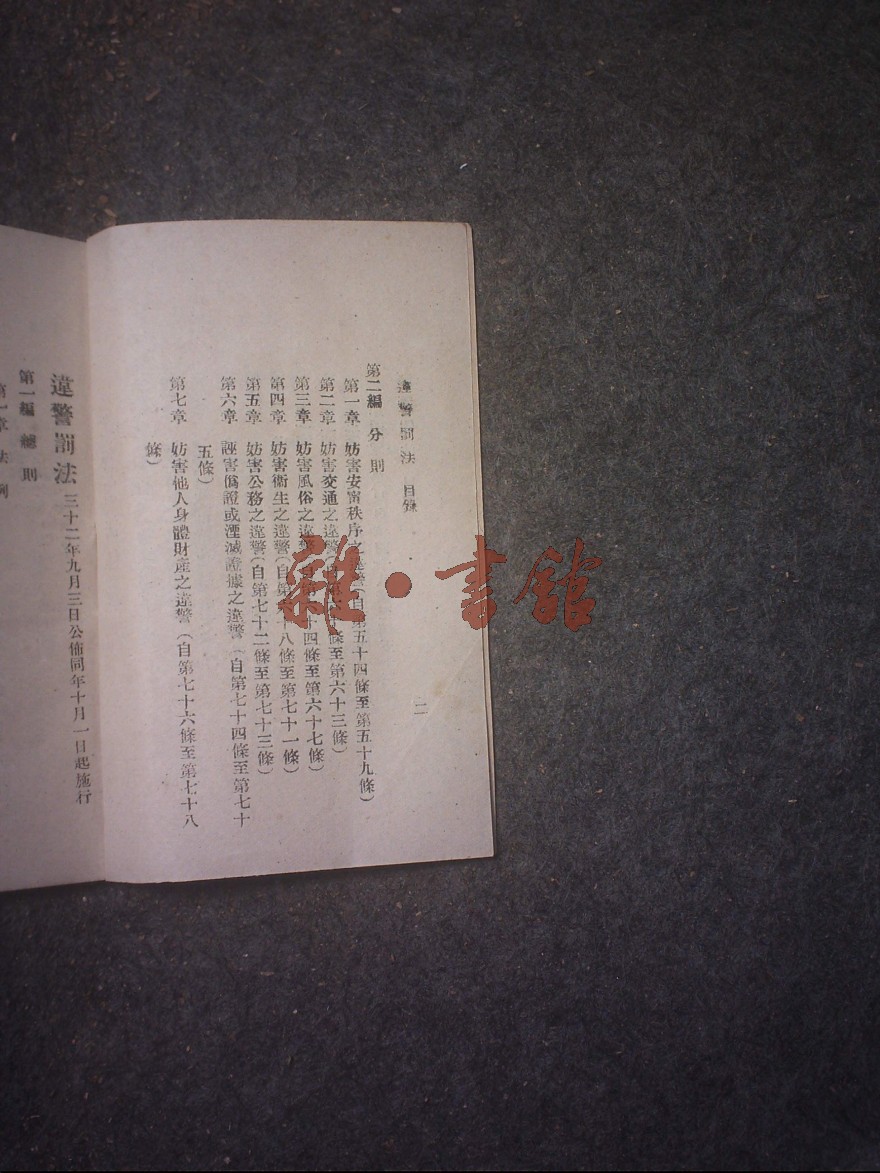 違警罰法 目錄
二
第二編 分則
第一章 妨害安甯秩序之違警(自第五十四條至第五十九條)
第二章 妨害交通之違警(自第六十條至第六十三條)
第三章 妨害風俗之違警(自第六十四條至第六十七條)
第四章 妨害衞生之違警(自第六十八條至第七十一條)
第五章 妨害公務之違警(自第七十二條至第七十三條)
第六章 誣害僞證或湮滅證據之違警(自第七十四條至第七十
五條)
第七章 妨害他人身體財產之違警(自第七十六條至第七十八
條)
違警罰法 三十二年九月三日公佈同年十月一日起施行
第一編 總則
第一章 法例
雜·書館